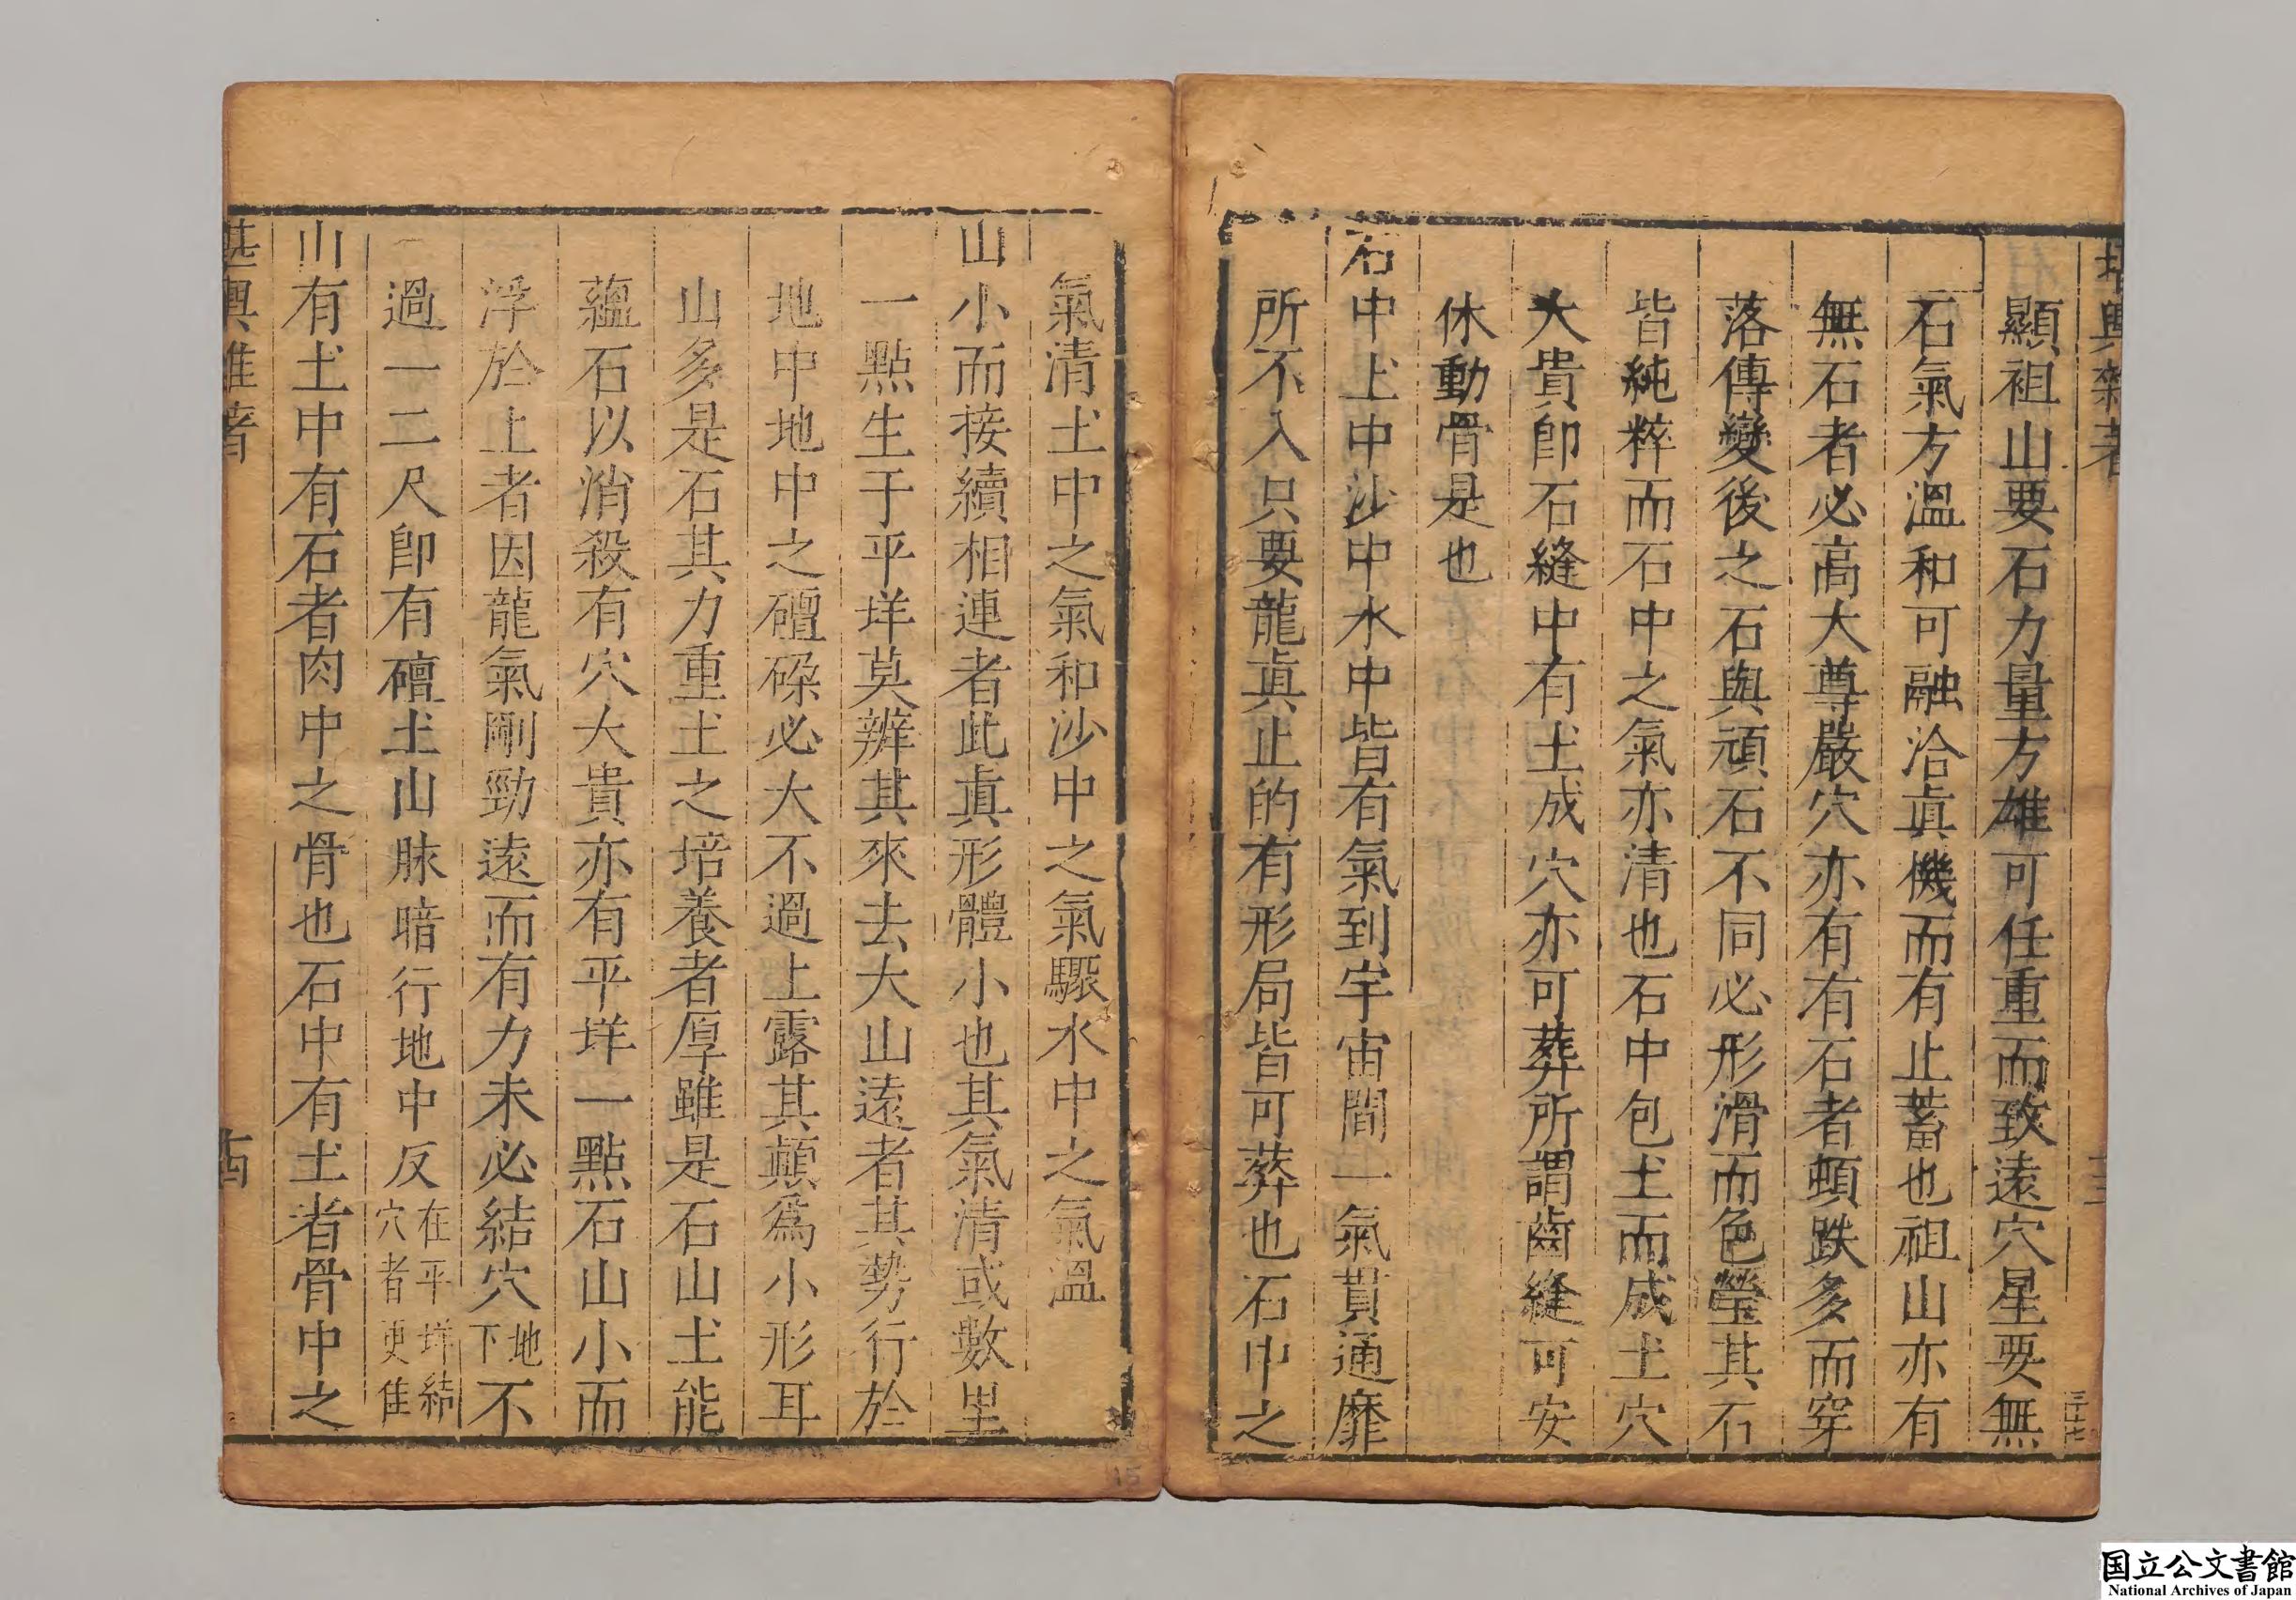 堪輿雜著
三十七
顯祖山要石力量方雄可任重而致遠穴星要無
石氣方溫和可融洽眞機而有止蓄也祖山亦有
無石者必高大尊嚴穴亦有有石者頓跌多而穿
落傳變後之石與頑石不同必形滑而色瑩其石
皆純粹而石中之氣亦清也石中包土而成土穴
大貴卽石縫中有土成穴亦可葬所謂齒縫可安
休動骨是也
石中土中沙中水中皆有氣到宇宙間一氣貫通靡
所不入只要龍眞止的有形局皆可葬也石中之
氣清土中之氣和沙中之氣驟水中之氣溫
山小而接續相連者此眞形體小也其氣清或數里
一點生于平垟莫辨其來去大山遠者其勢行於
地中地中之礓磜必大不過上露其顚爲小形耳
山多是石其力重土之培養者厚雖是石山土能
蘊石以消殺有穴大貴亦有平垟一點石山小而
浮於上者因龍氣剛勁遠而有力未必結穴地下不
過一二尺卽有礓土山脉暗行地中反在平垟結穴者更佳
山有土中有石者肉中之骨也石中有土者骨中之
堪輿雜著
国立公文書館
National Archives of Japan